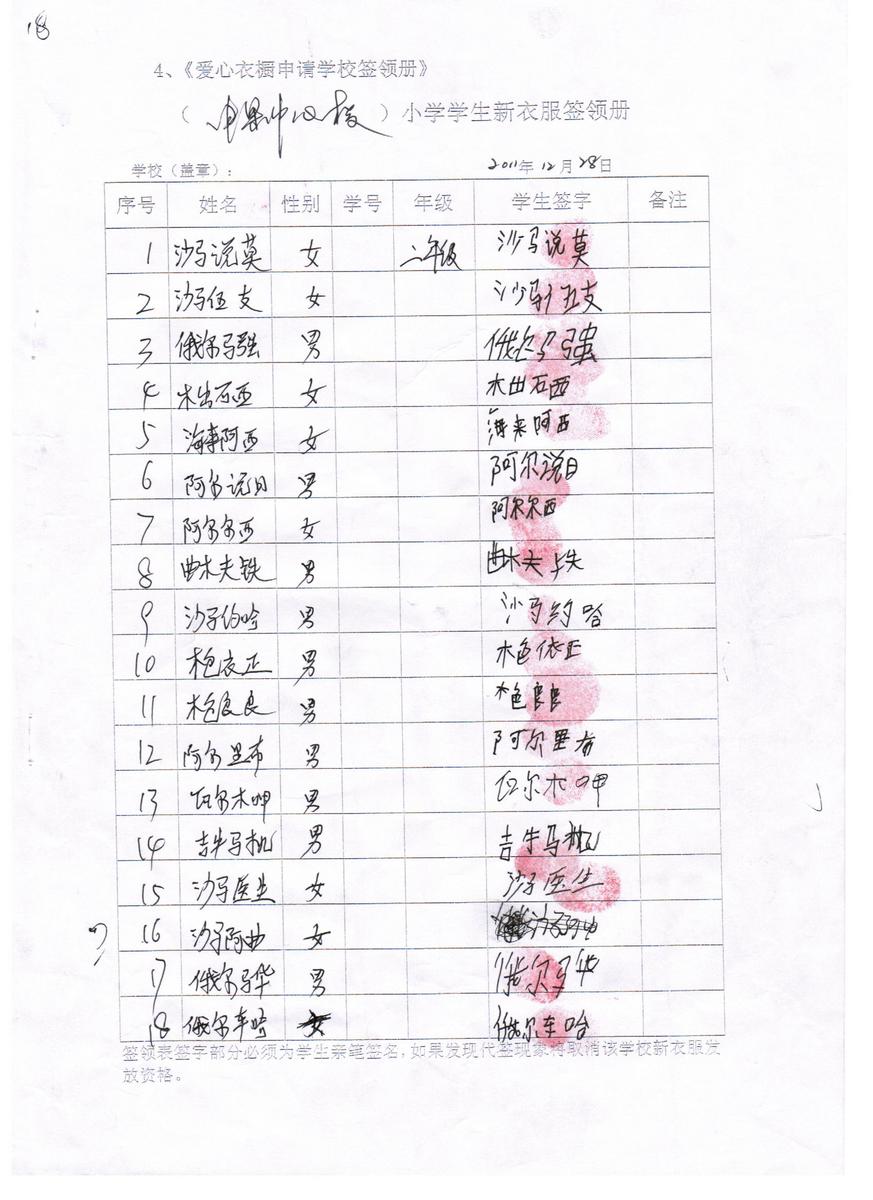 18
4、《爱心衣橱申请学校签领册》
（ 中心校 ）小学学生新衣服签领册
学校（盖章）： 2011年12月28日
序号 姓名 性别 学号 年级 学生签字 备注
1 沙马说莫 女 二年级 沙马说莫
2 沙马伍支 女 沙马伍支
3 俄尔马强 男 俄尔马强
4 木出石西 女 木出石西
5 海来阿西 女 海来阿西
6 阿尔说日 男 阿尔说日
7 阿尔尔西 女 阿尔尔西
8 曲木夫铁 男 曲木夫铁
9 沙马约哈 男 沙马约哈
10 木色依正 男 木色依正
11 木色良良 男 木色良良
12 阿尔里布 男 阿尔里布
13 瓦尔木呷 男 瓦尔木呷
14 吉牛马机 男 吉牛马机
15 沙马医生 女 沙马医生
16 沙马阿曲 女
17 俄尔马华 男 俄尔马华
18 俄尔车哈 女 俄尔车哈
签领表签字部分必须为学生亲笔签名，如果发现代签现象将取消该学校新衣服发
放资格。